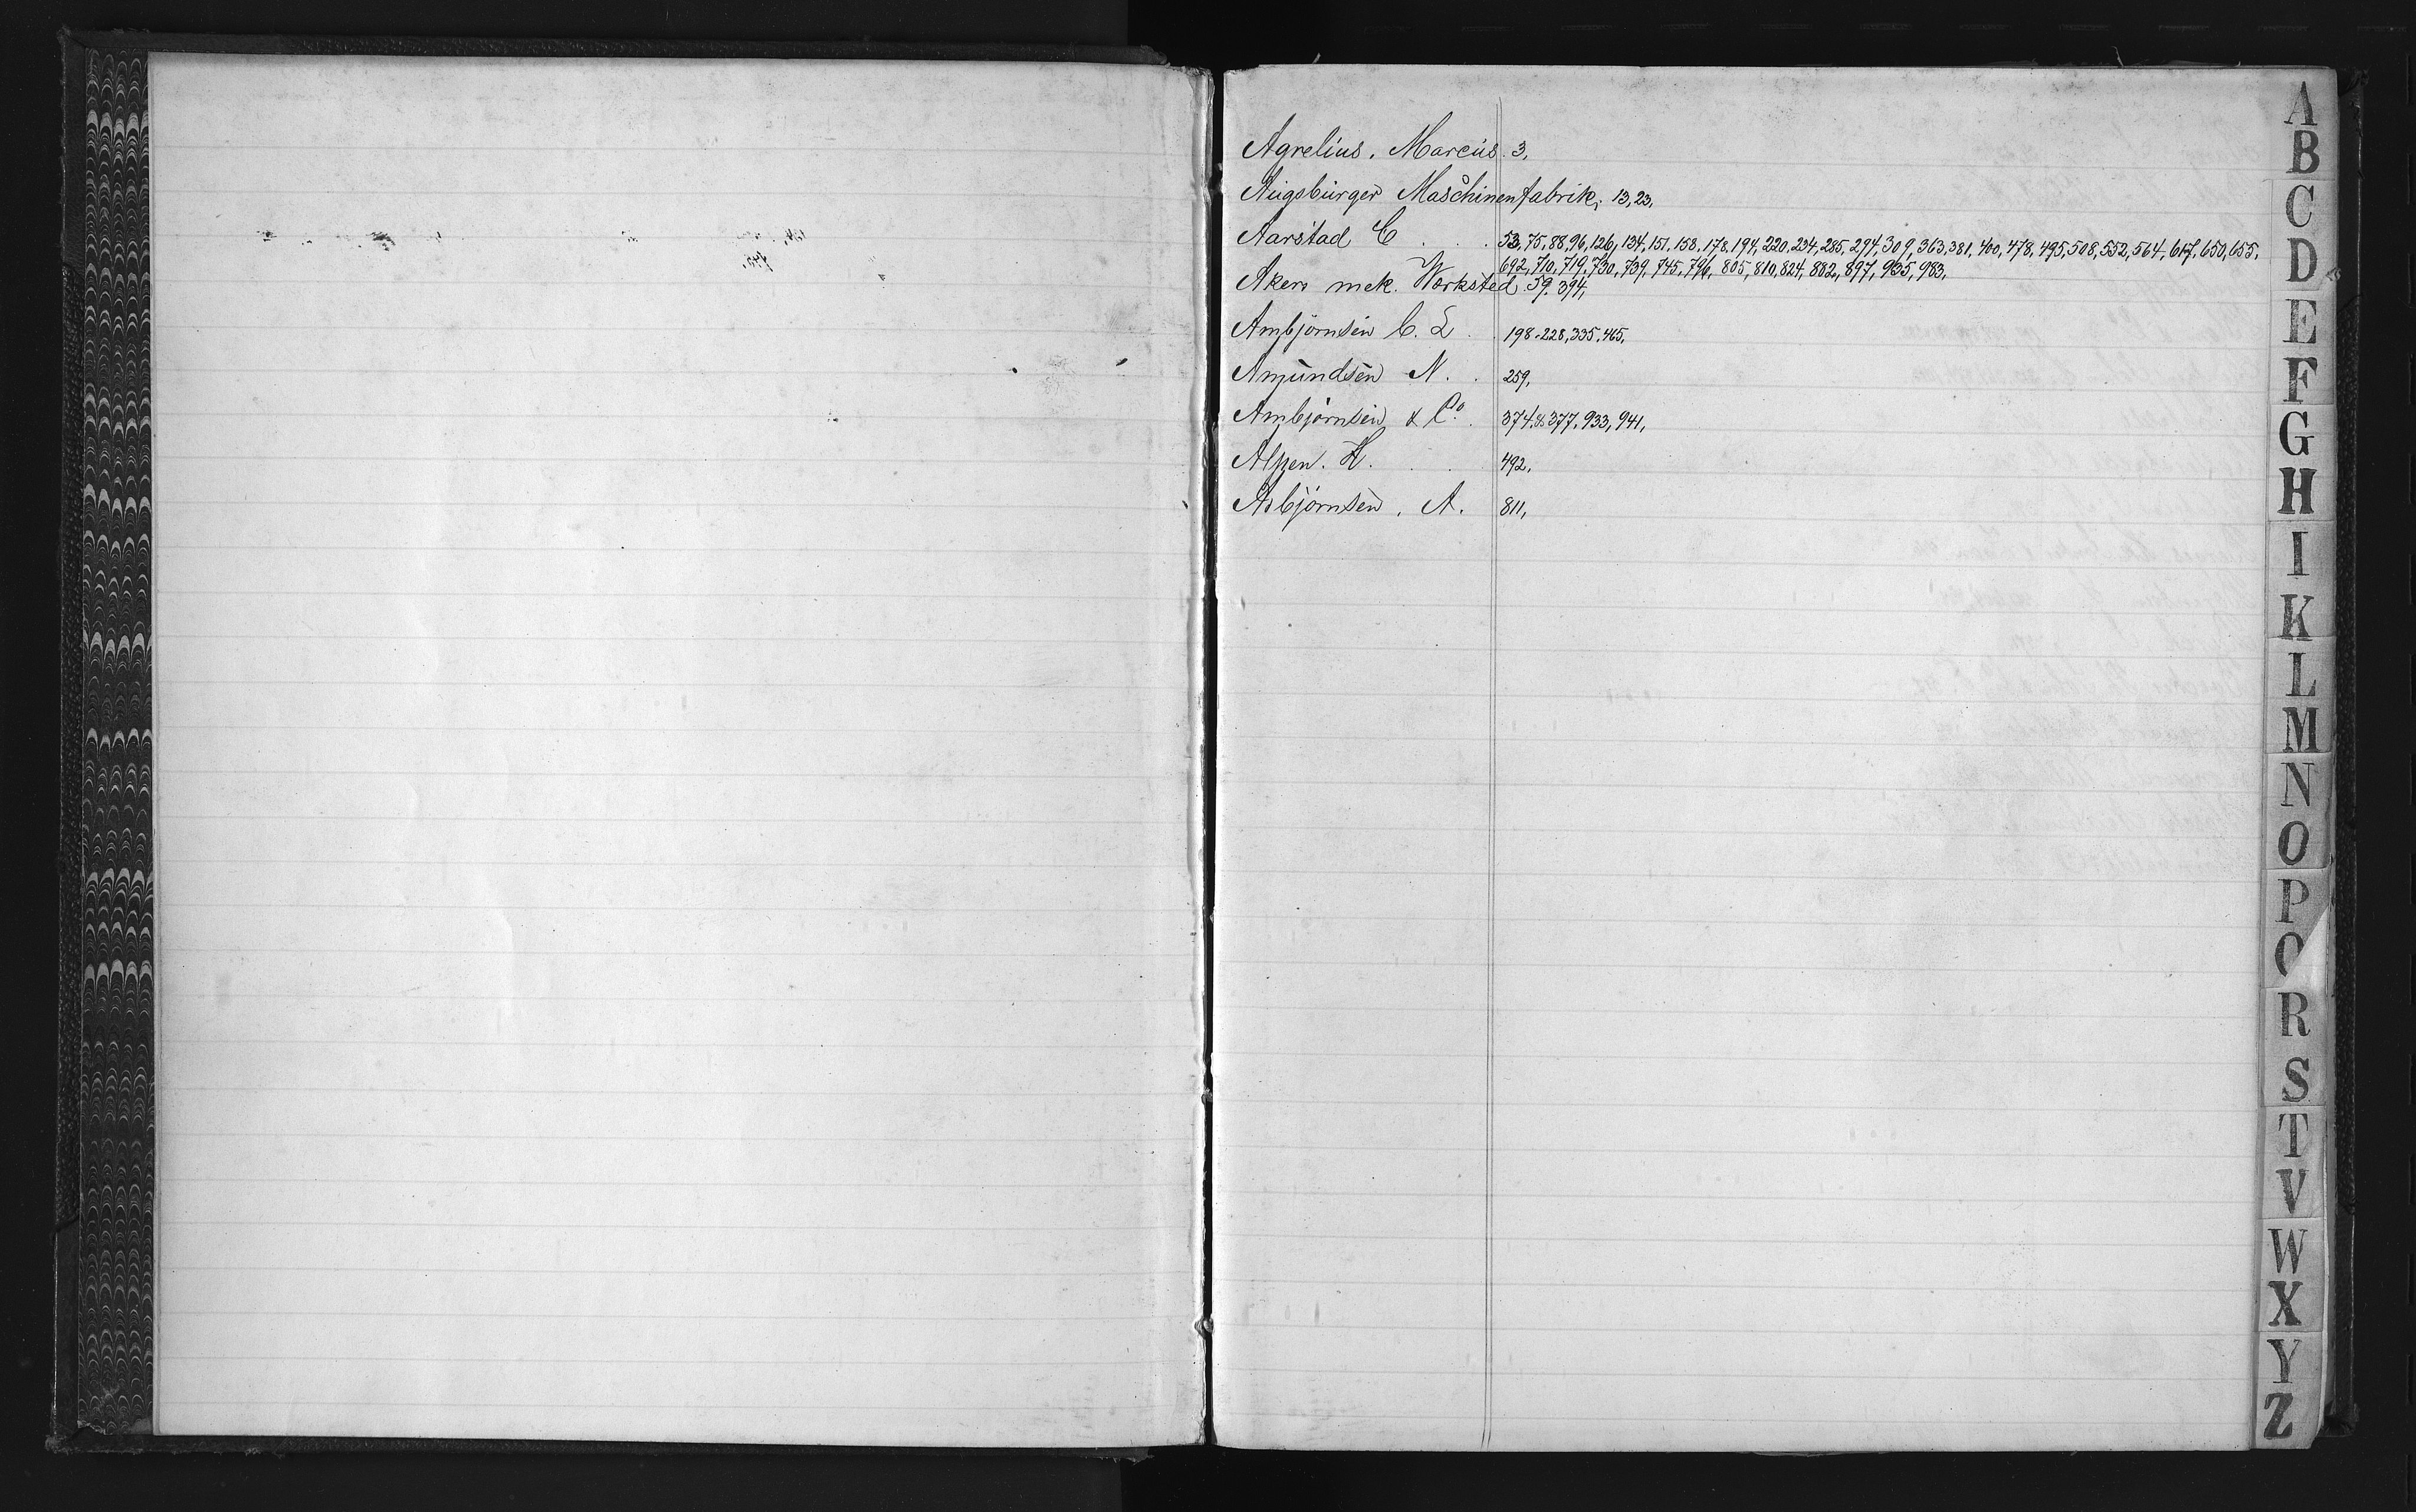 Agrelius. Marcus. 3,
Augsburger Maschinenfabrik, 13, 23,
Aarstad C . . . 53, 75, 88, 96, 126, 134, 151, 158, 178, 194, 220, 234, 285, 294, 309, 363, 381, 400, 478, 495, 508, 552, 564, 617, 650, 655,
692, 710, 719, 730, 739, 745, 796, 805, 810, 824, 882, 897, 935, 983,
Akers mek. Værksted. 59. 394,
Ambjörnsen C. L . . 198. 228, 335, 465,
Amundsen N. . 259,
Ambjörnsen & Co. 374. & 377. 933, 941,
Alpen. H. . . . 492,
Asbjörnsen. A. 811,
A
B
C
D
E
F
G
H
I
K
L
M
N
O
P
Q
R
S
T
V
W
X
Y
Z